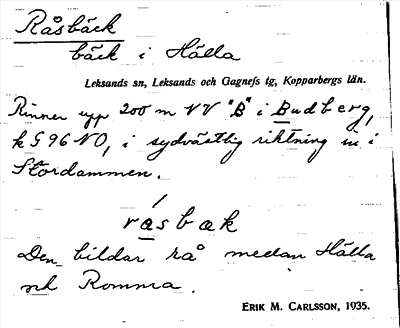 Råsbäck
bäck i Hälla
Leksands sn, Leksands och Gagnefs tg, Kopparbergs län.
Rinner upp 200 m NV "B" i Budberg,
k G 96 NO, i sydvästlig riktning in i
Stordammen.
råsbäk
Den bildar rå medan Hälla
och Romma.
ERIK M. CARLSSON, 1935.